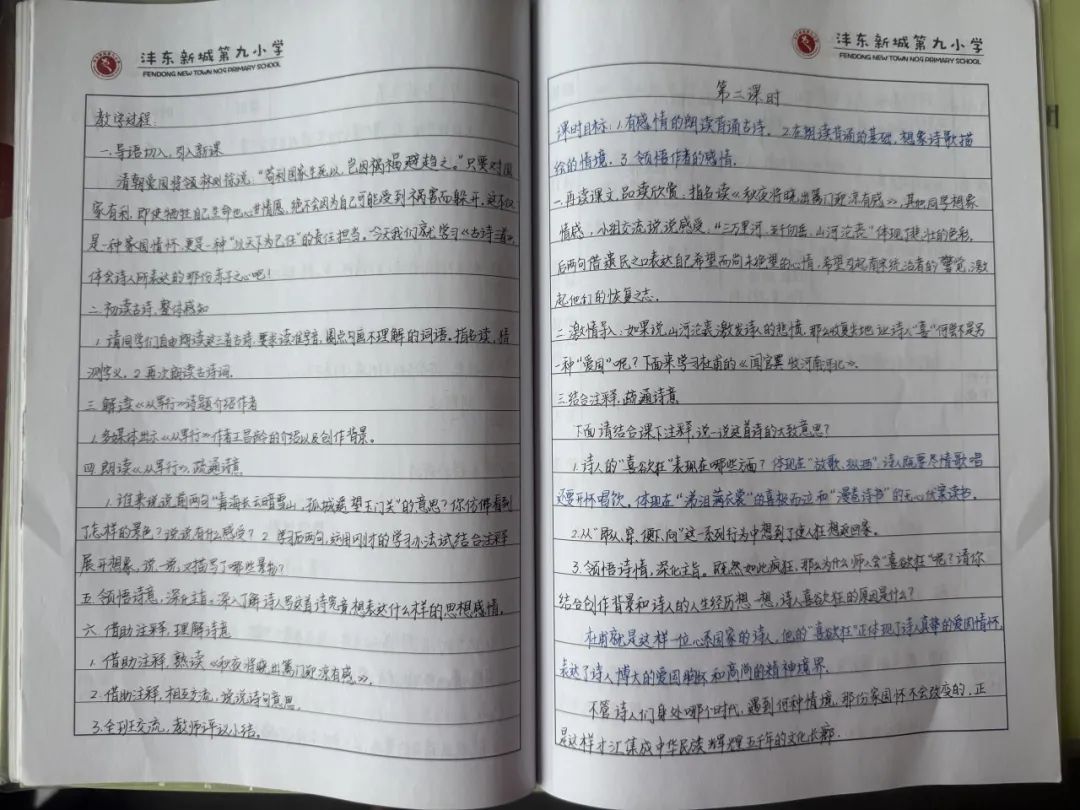 沣东新城第九小学
FENDONG NEW TOWN NO9 PRIMARY SCHOOL
教学过程:
一.导语切入,引入新课
清朝爱国将领林则徐说:“苟利国家生死以,岂因祸福避趋之。”只要对国
家有利,即使牺牲自己生命也心甘情愿,绝不会因为自己可能受到祸害而躲开。这不仅
是一种家国情怀,更是一种“以天下为己任”的责任担当。今天我们就学习《古诗三首》,
体会诗人所表达的那份赤子之心吧!
二.初读古诗,整体感知
1.请同学们自由朗读这三首古诗,要求读准字音,圈点勾画不理解的词语。指名读,猜
测字义。2.再次朗读古诗词。
三.解读《从军行》诗题,介绍作者
1.多媒体出示《从军行》作者王昌龄的介绍以及创作背景。
四.朗读《从军行》,疏通诗意
1.谁来说说前两句“青海长云暗雪山,孤城遥望玉门关”的意思?你仿佛看到
了怎样的景色?说说有什么感受?2.学习后两句,运用刚才的学习办法试结合注释
展开想象,说一说,又描写了哪些景物?
五.领悟诗意,深化主旨,深入了解诗人写这首诗究竟想表达什么样的思想感情。
六.借助注释,理解诗意
1.借助注释,熟读《秋夜将晓出篱门迎凉有感》。
2.借助注释,相互交流,说说诗句意思。
3.全班交流,教师评议小结。
沣东新城第九小学
FENDONG NEW TOWN NO9 PRIMARY SCHOOL
第二课时
课时目标:1.有感情的朗读背诵古诗。2.在朗读背诵的基础,想象诗歌描
绘的情境。3.领悟作者的感情。
一.再读课文,品读欣赏,指名读《秋夜将晓出篱门迎凉有感》,其他同学想象
情感,小组交流说说感受,“三万里河,五千仞岳,山河沦丧”体现了悲壮的色彩,
后两句借遗民之口表达自己希望而尚未绝望的心情,希望引起南宋统治者的警觉,激
起他们的恢复之志。
二.激情导入:如果说,山河沦丧激发诗人的悲愤,那么收复失地让诗人“喜”何尝不是另
一种“爱国”呢?下面来学习杜甫的《闻官军收河南河北》。
三.结合注释,疏通诗意
下面请结合课下注释,说一说这首诗的大致意思?
1.诗人的“喜欲狂”表现在哪些方面?体现在“放歌、纵酒”,诗人既要尽情歌唱
还要开怀喝饮。体现在“涕泪满衣裳”的喜极而泣和“漫卷诗书”的无心伏案读书。
2.从“即从、穿、便下、向”这一系列行为中想到了使人狂想返回家。
3.领悟诗情,深化主旨。既然如此疯狂,那么为什么诗人会“喜欲狂”呢?请你
结合创作背景和诗人的人生经历想一想,诗人喜欲狂的原因是什么?
杜甫就是这样一位心系国家的诗人,他的“喜欲狂”正体现了诗人真挚的爱国情怀,
表达了诗人博大的爱国胸怀和高尚的精神境界。
不管诗人们身处哪个时代,遇到何种情境,那份家国怀不会改变的,正
是这样才汇集成中华民族辉煌五千年的文化长廊.